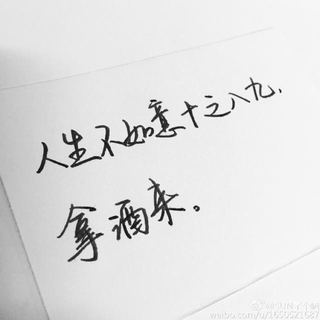 人生不如意十之八九，
拿酒来。
weibo.com/u/1650521587